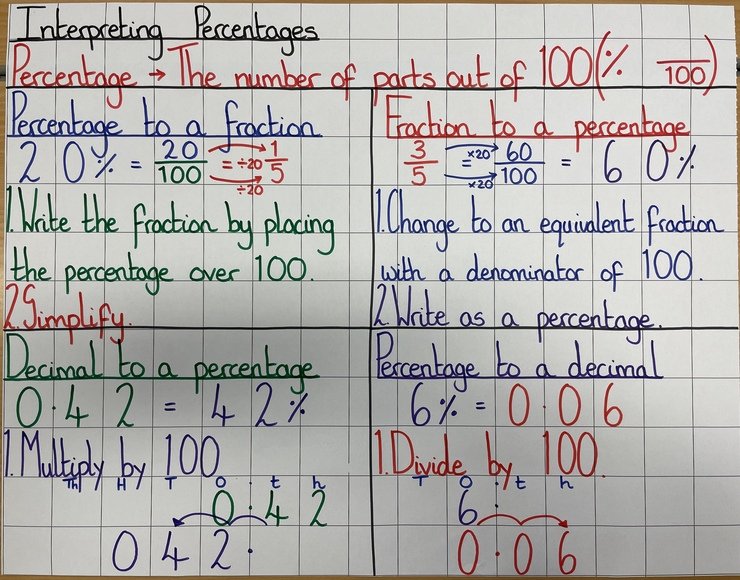 Interpreting Percentages
Percentage → The number of parts out of 100 (% /100)
Percentage to a fraction
20% = 20/100 = 1/5
÷20
÷20
1. Write the fraction by placing
the percentage over 100.
2. Simplify.
Fraction to a percentage
3/5 = 60/100 = 60%
×20
×20
1. Change to an equivalent fraction
with a denominator of 100.
2. Write as a percentage.
Decimal to a percentage
0.42 = 42%
1. Multiply by 100
Th H T O . t h
0.42
042.
Percentage to a decimal
6% = 0.06
1. Divide by 100.
T O . t h
6.
0.06